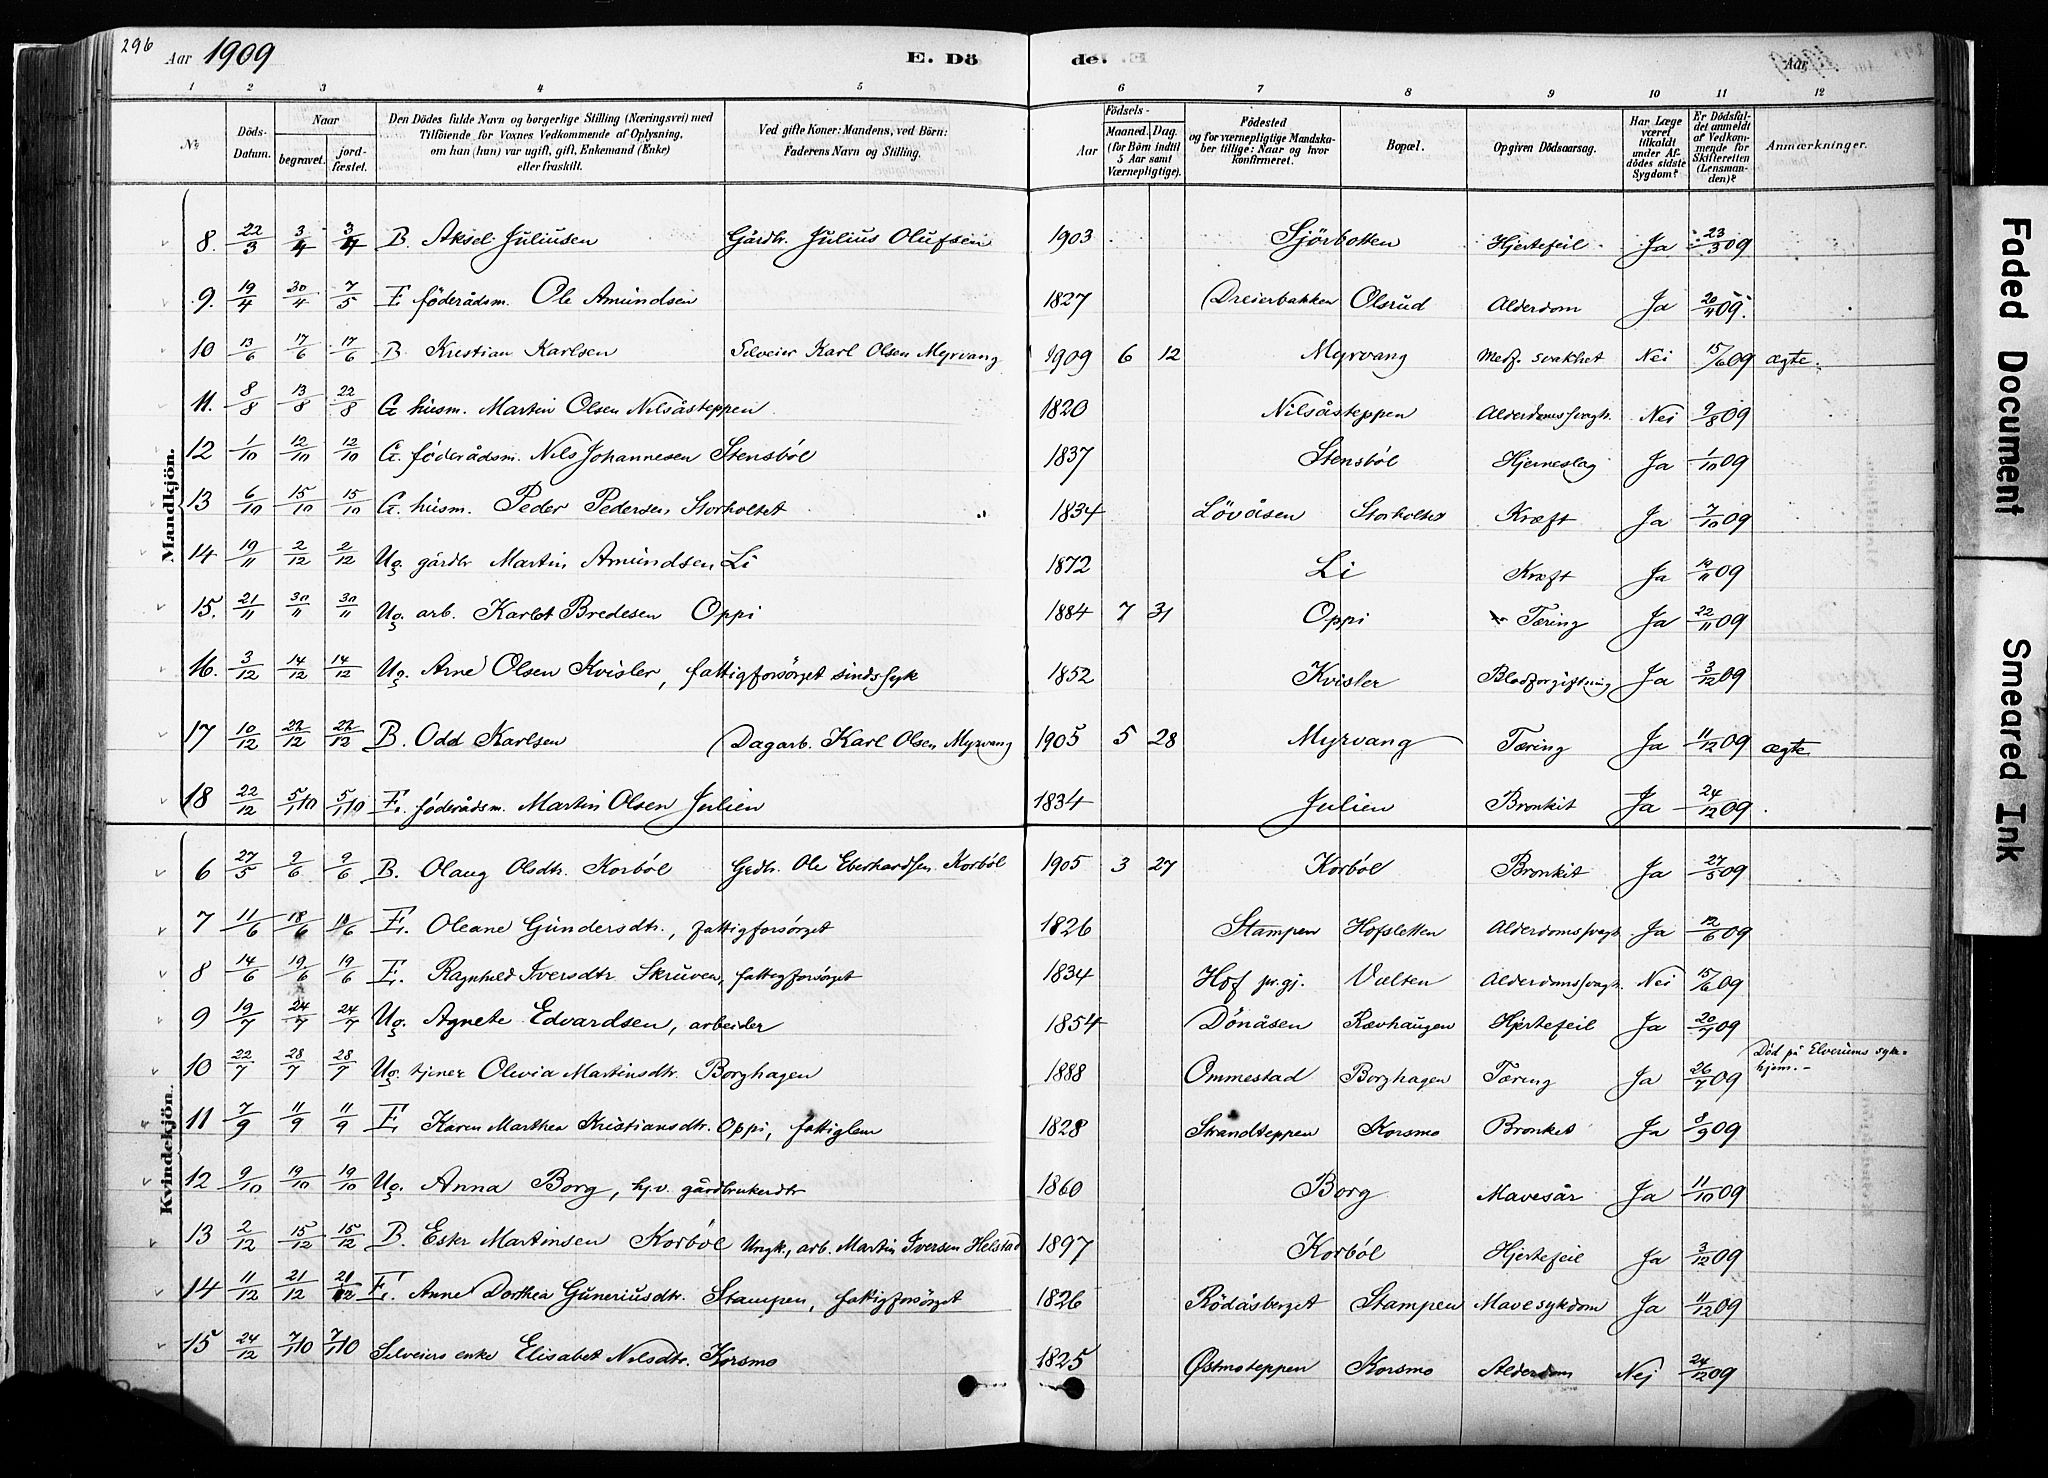 296
Aar 1909 E. Dö de. Aar
1 2 3 4 5 6 7 8 9 10 11 12
№ Döds-Datum. Naar begravet. jord-fæstet. Den Dödes fulde Navn og borgerlige Stilling (Næringsvei) med Tilföiende for Voxnes Vedkommende af Oplysning, om han (hun) var ugift, gift, Enkemand (Enke) eller fraskilt. Ved gifte Koner: Mandens, ved Börn: Faderens Navn og Stilling. Aar Födsels- Maaned. Dag. (for Börn indtil 5 Aar samt Værnepligtige). Födested og for værnepligtige Mandska-ber tillige: Naar og hvor konfirmeret. Bopæl. Opgiven Dödsaarsag. Har Læge været tilkaldt under Af-dödes sidste Sygdom? Er Dödsfal-det anmeldt af Vedkom-mende for Skifteretten (Lensman-den)? Anmærkninger.
Mandkjön.
8. 22/3 3/4 3/4 B. Aksel Juliusen Gårdbr. Julius Olufsen 1903 Sjörbotten Hjertefeil Ja 23/3 09
9. 19/4 20/4 7/5 E. föderådsm. Ole Amundsen 1827 Dreierbakken Olsrud Alderdom Ja 20/4 09.
10 13/6 17/6 17/6 B. Kristian Karlsen Selveier Karl Olsen Myrvang 1909 6 12 Myrvang Medf. svakhet Nei 15/6 09 ægte.
11. 8/8 13/8 22/8 G. husm. Martin Olsen Nilsåsteppen 1820 Nilsåsteppen Alderdomssvagh. Nei 9/8 09
12 1/10 12/10 12/10 G. föderådsm. Nils Johannesen Stensböl 1837 Stensböl Hjerneslag Ja 1/10 09
13 6/10 15/10 15/10 G. husm. Peder Pedersen, Storholtet 1834 Lövåsen Storholtet Kræft Ja 7/10 09
14 19/11 2/12 2/12 Ug. gårdbr Martin Amundsen Li 1872 Li Kræft Ja 19/11 09
15. 21/11 30/11 30/11 Ug. arb. Karlot Bredesen Oppi 1884 7 31 Oppi Tæring Ja 22/11 09
16. 3/12 14/12 14/12 Ug. Arne Olsen Kvisler, fattigforsörget sindssyk 1852 Kvisler Blodforgiftning Ja 3/12 09
17 10/12 22/12 22/12 B. Odd Karlsen Dagarb. Karl Olsen Myrvang 1905 5 28 Myrvang Tæring Ja 11/12 09 ægte
18 22/12 5/1 10 5/1 10 E. föderådsm. Martin Olsen Julien 1834 Julien Bronkit Ja 24/12 09
Kvindekjön.
6 27/5 9/6 9/6 B. Olaug Olsdtr. Korböl Grdbr. Ole Eberhardsen Korböl 1905 3 27 Korböl Bronkit Ja 27/5 09
7 11/6 18/6 18/6 E. Oleane Gundersdtr., fattigforsörget 1826 Stampen Hofsletten Alderdomssvagh. Ja 12/6 09
8 14/6 19/6 19/6 E. Ragnhild Iversdtr Skruven, fattigforsörget 1834 Hof pr.gj. Valten Alderdomssvagh. Nei 15/6 09
9 19/7 24/7 24/7 Ug. Agnete Edvardsen, arbeider 1854 Dönåsen Rævhaugen Hjertefeil Ja 20/7 09
10 22/7 28/7 28/7 Ug. tjener Olivia Martinsdtr. Borghagen 1888 Ommestad Borghagen Tæring Ja 26/7 09 Död på Elverums syk-hjem. -
11 7/9 11/9 11/9 E. Karen Marthea Kristiansdtr. Oppi, fattiglem 1828 Strandteppen Korsmo Bronket Ja 8/9 09
12 9/10 19/10 19/10 Ug. Anna Borg, hj.v. gårdbrukerdtr 1860 Borg Mavesår Ja 11/10 09
13 2/12 15/12 15/12 B. Ester Martinsen Korböl Ungk., arb. Martin Iversen Helstad 1897 Korböl Hjertefeil Ja 3/12 09
14 11/12 21/12 21/12 E. Anne Dorthea Guneriusdtr. Stampen, fattigforsörget 1826 Rödåsberget Stampen Mavesykdom Ja 11/12 09
15 24/12 7/1 10 7/1 10 Selveiers enke Elisabet Nilsdtr. Korsmo 1825 Østmoteppen Korsmo Alderdom Nej 24/12 09
Faded Document
Smeared Ink